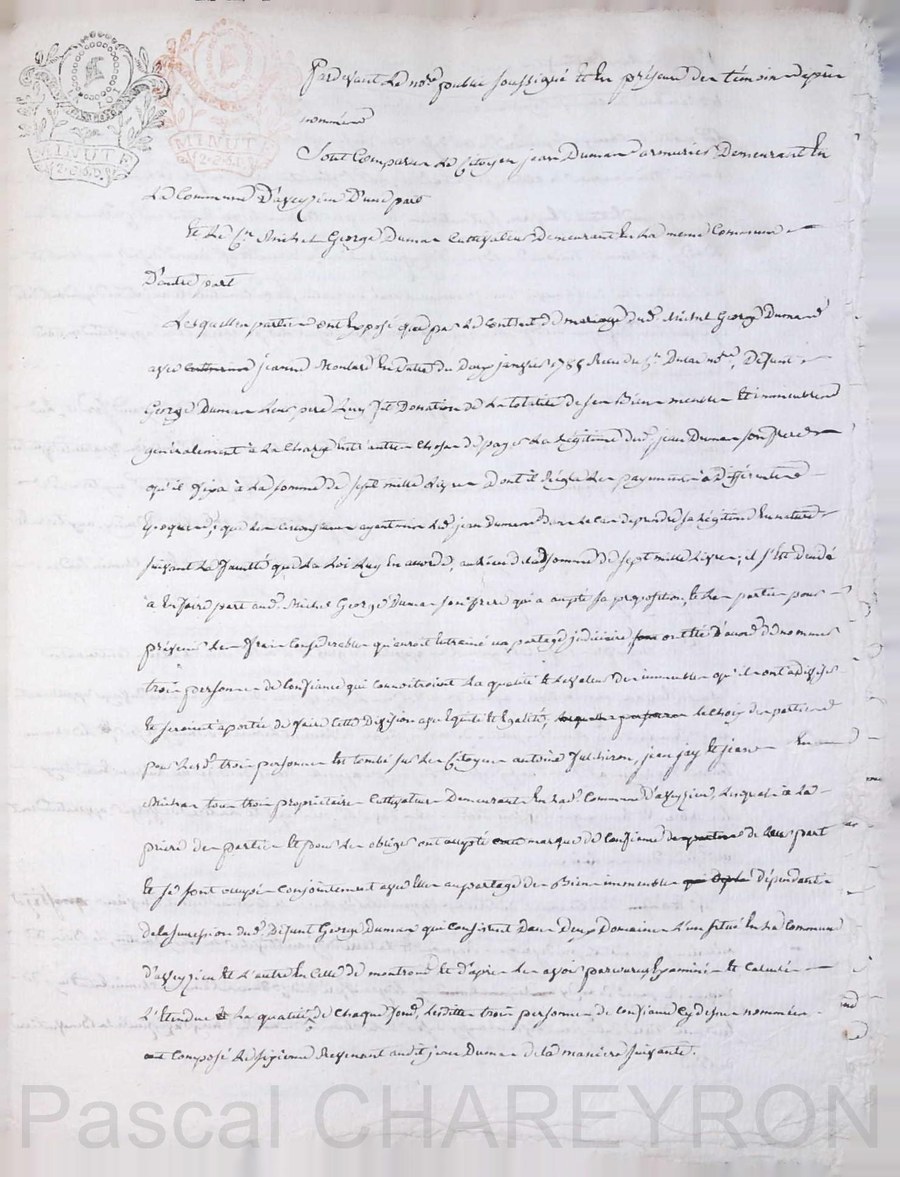 MINUTE
MINUTE
Pardevant Le no.re public soussigné et En présence des témoins cy apres
nommés
Sont Comparus Le Citoyen jean Dumas armurier Demeurant En
La Commune D'aveyzieu D'une part
Et Le C.en Michel George Dumas Cultivateur Demeurant En La meme Commune
D'autre part
Lesquelles parties ont Exposé que par Le Contrat de mariage dud. Michel George Dumas
avec jeanne Montard En Datte du Deux janvier 1788 Recu du C.en Duras no.re, Defunt
George Dumas Leur pere Luy fit Donation de La totalité de ses Biens meubles Et immeubles
généralement à La Charge entr'autres Choses de payer La Légitime dud. jean Dumas son frere
qu'il fixa à La somme de sept mille Livres Dont il Régla Les payments à Différentes
Epoques; que Les circonstances ayant mis Led. jean Dumas dans Le Cas de prendre sa Légitime En nature
suivant La faculté que La Loi Luy En accorde, au Lieu de La ditte somme de sept mille Livres; il s'est décidé
à En faire part aud. Michel George Dumas son frere qui a accepté sa proposition, Et Les parties pour
prévenir Les frais Considerables qu'auroit Entrainé un partage judiciaire ont été d'accord de nommer
trois personnes de Confiance qui Connoitroient La qualité Et La valeur des immeubles qu'il ont a diviser
Et seroient a portée de faire Cette Division avec Equité Et Egalité, Le Choix des parties
pour Lesd. trois personnes Est tombé sur Les Citoyens antoine julhiron, jean jay Et jean
Michas tous trois propriétaires Cultivateurs Demeurants En Lad. Commune D'aveyzieu, Lesquels à La
priere des parties Et pour Les obliger ont accepté marque de Confiance de Leur part
Et se sont occupés Conjointement avec Elles au partage des Biens immeubles dépendants
de La succession dud. Défunt George Dumas qui Consistent Dans Deux Domaines L'un situé En La Commune
D'aveyzieu Et L'autre En Celle de montrond Et d'après Les avoir parcourus Examiné Et Calculé
L'Etendue Et La qualité de Chaque fond, Lesdittes trois personnes de Confiance Cy dessus nommées
ont Composé Le sixieme Revenant audit jean Dumas de La maniere suivante.
Pascal CHAREYRON